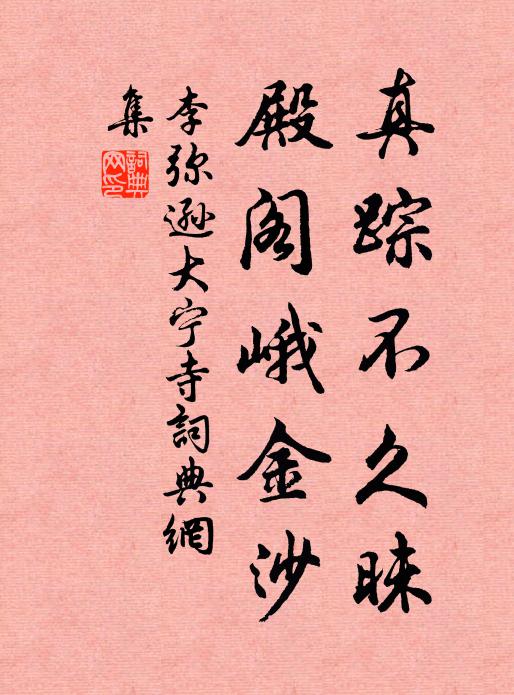 真踪不久昧
殿阁峨金沙
李弥逊大宁寺詞典網
集
詞典网印